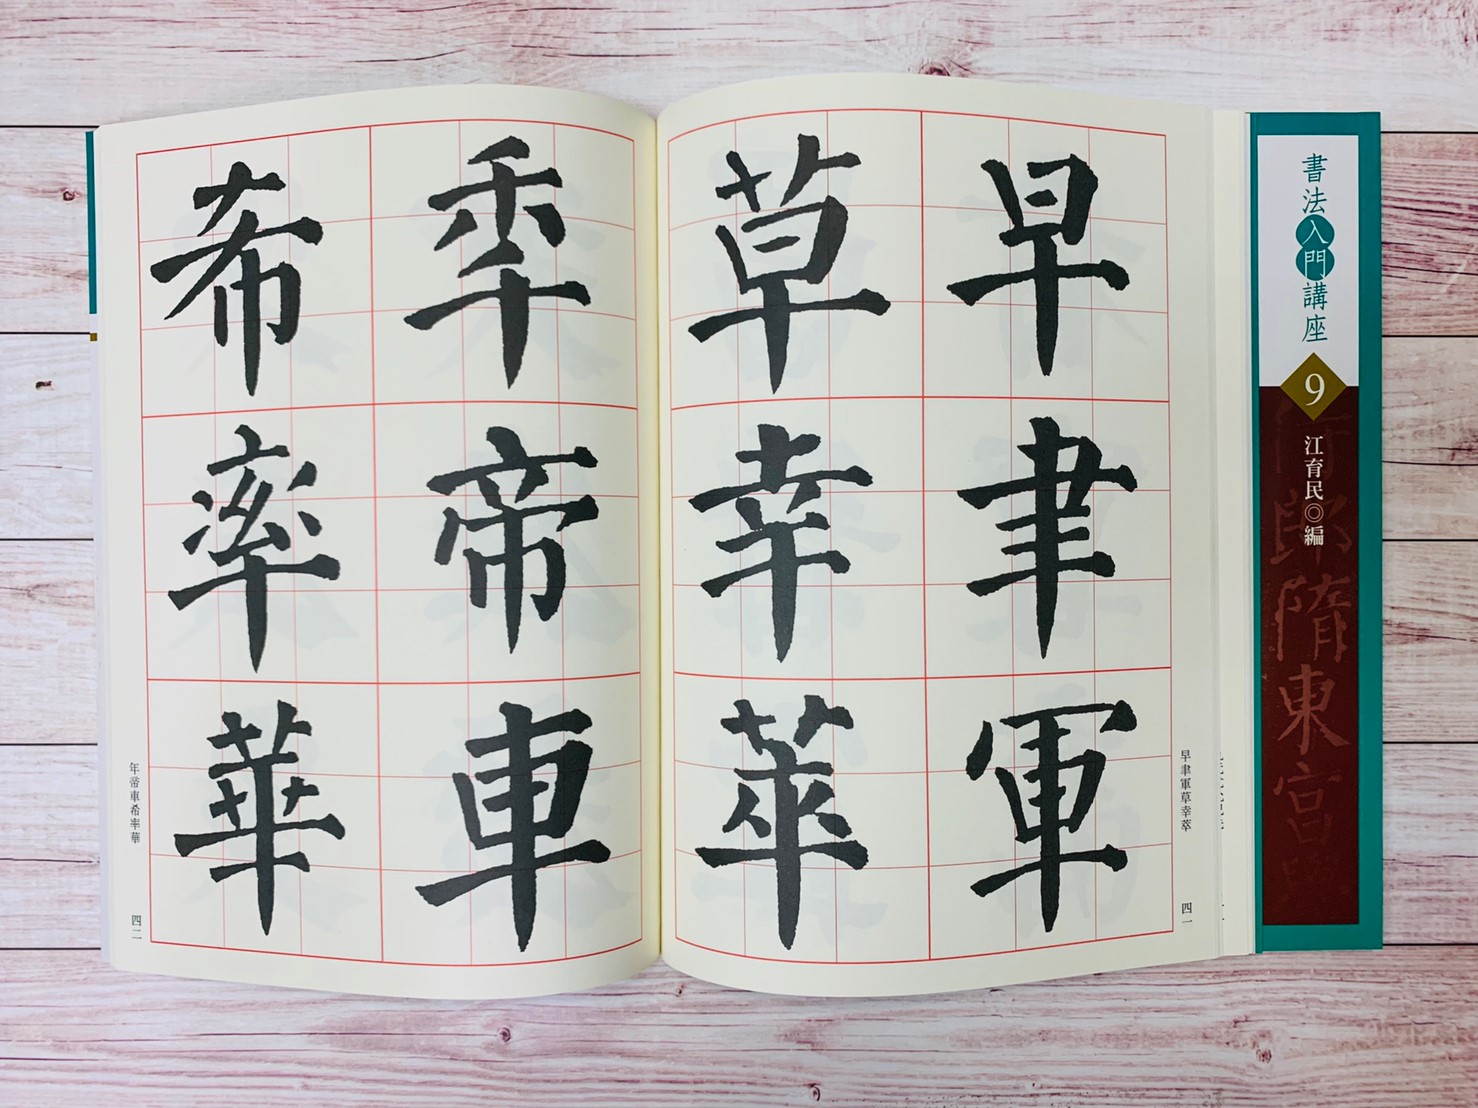 書法入門講座
9
江育民◎編
郎隋東宮
早聿軍
草幸萃
早聿軍草幸萃
四一
秊帝車
希率華
年帝車希率華
四二